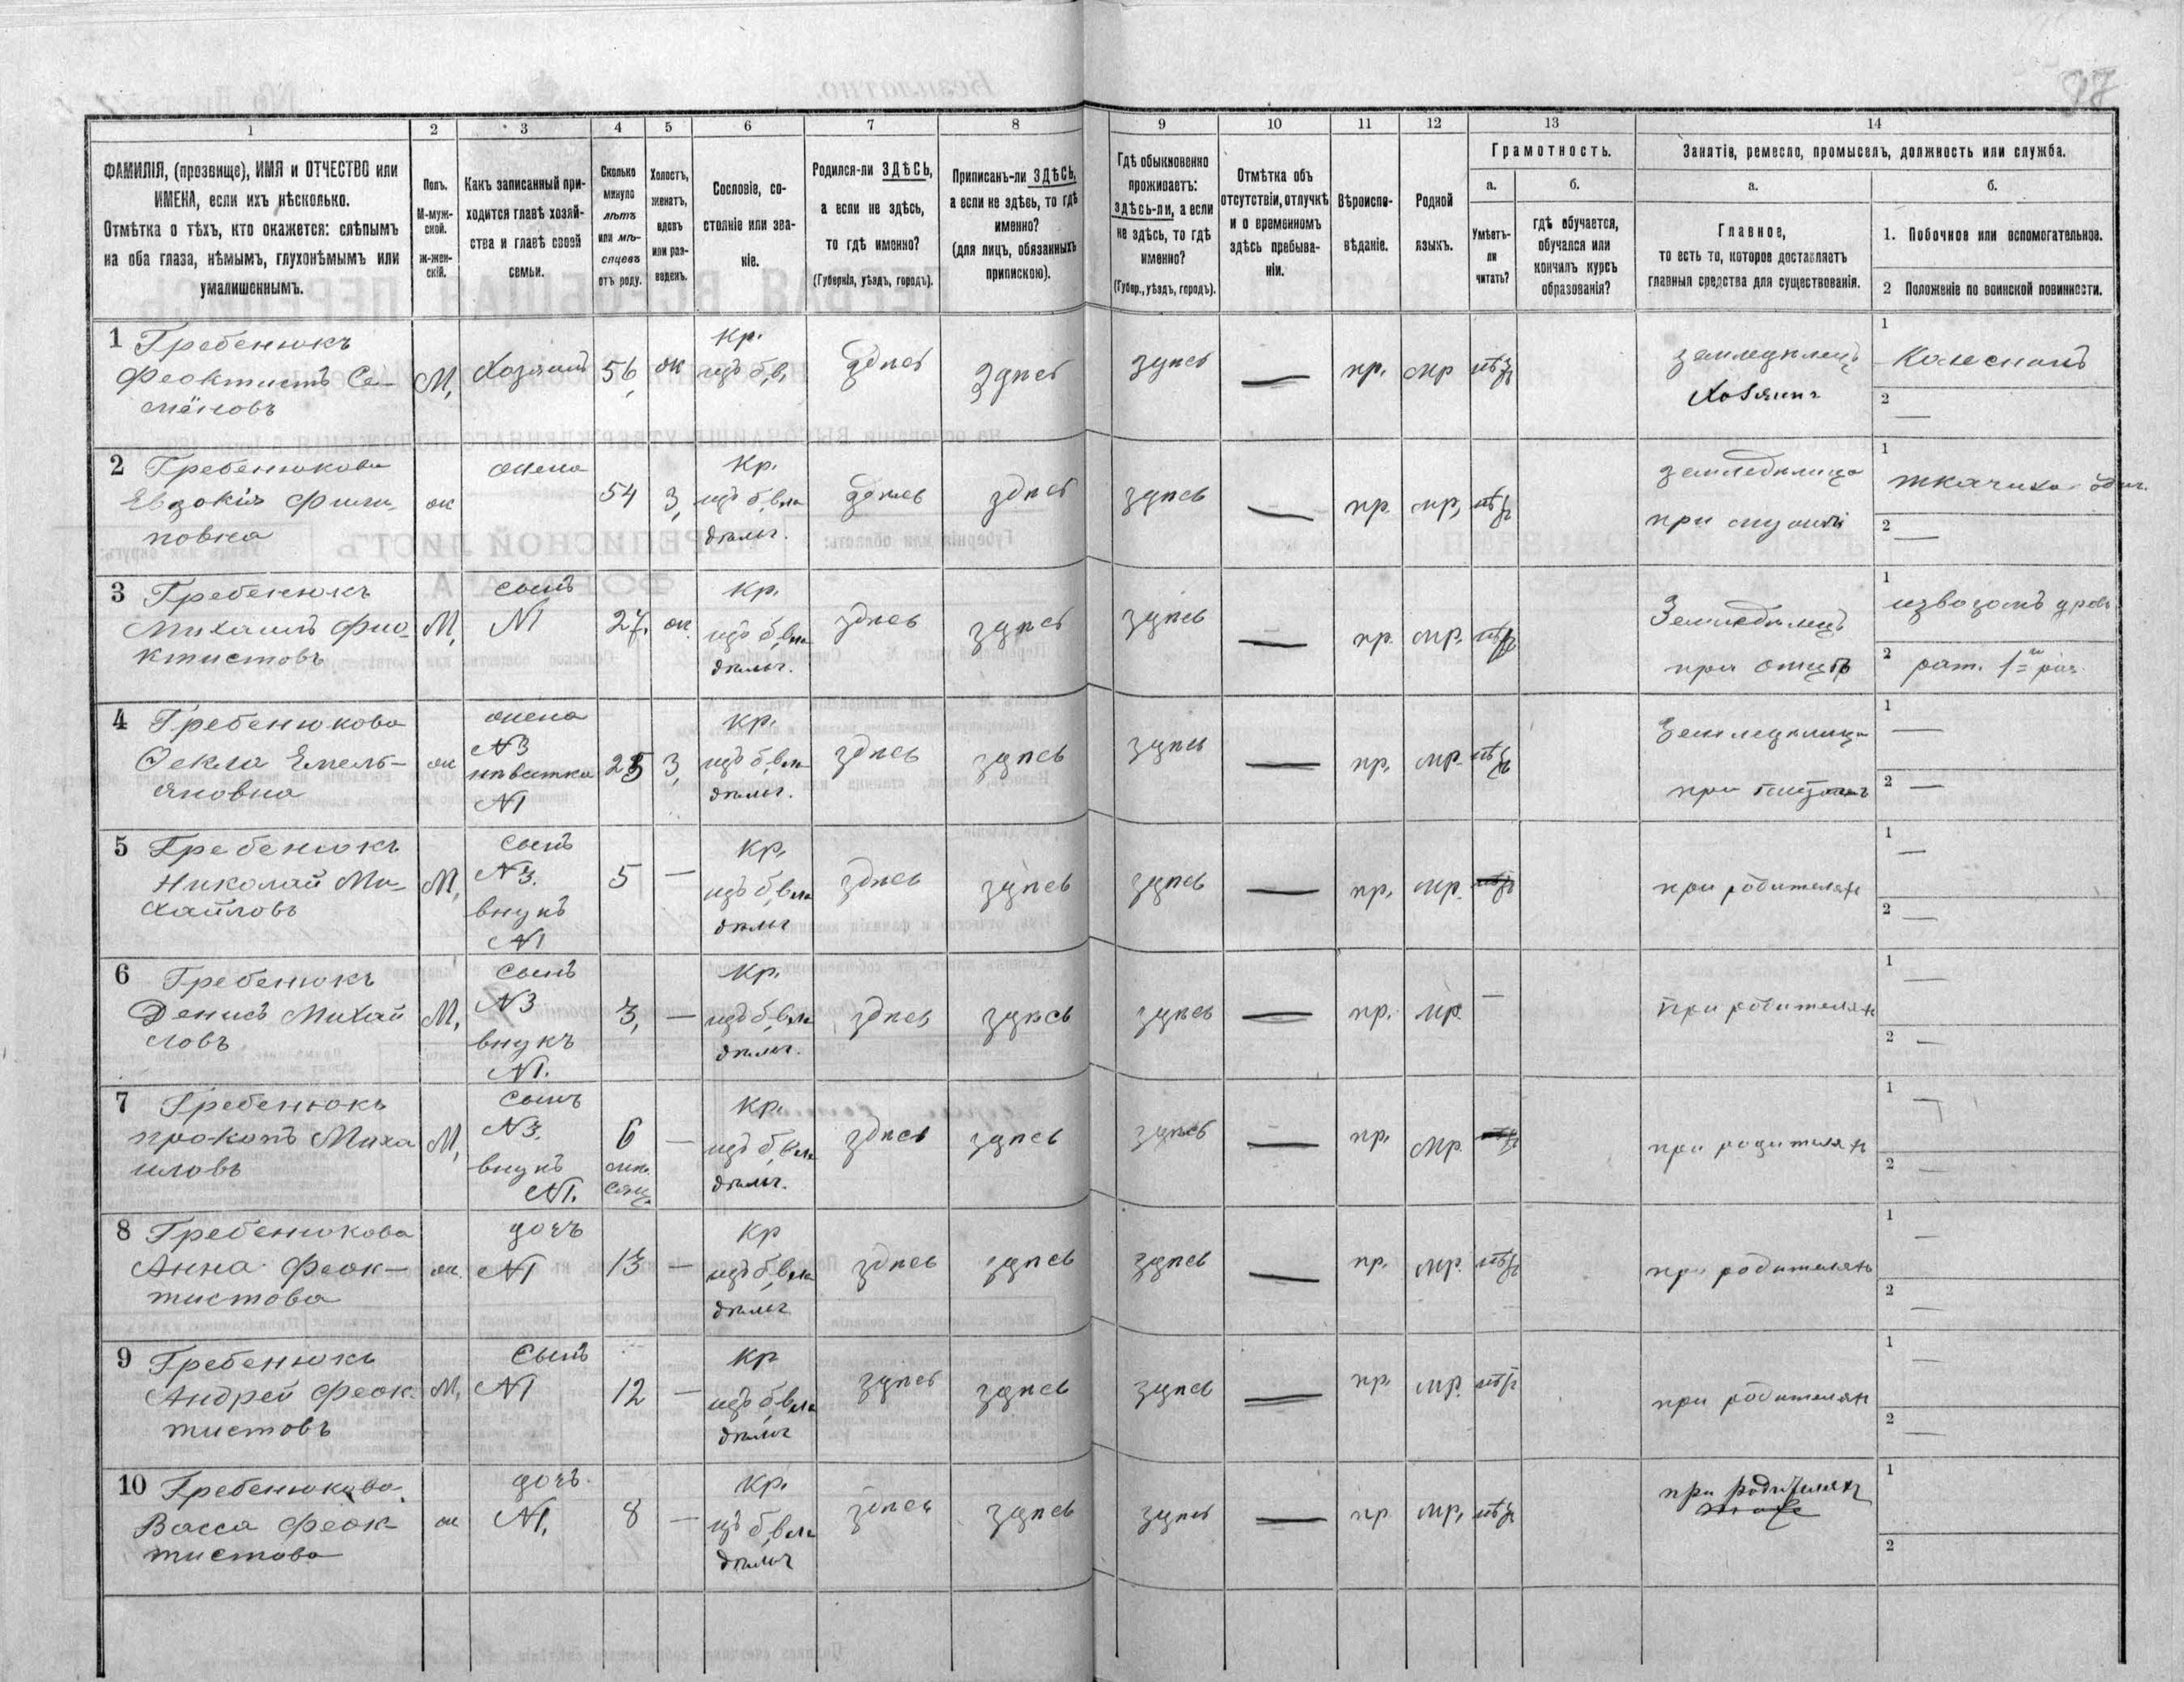 1
2
3
4
5
6
7
8
9
10
11
12
13
14
ФАМИЛІЯ, (прозвище), ИМЯ и ОТЧЕСТВО или
ИМЕНА, если ихъ нѣсколько.
Отмѣтка о тѣхъ, кто окажется: слѣпымъ
на оба глаза, нѣмымъ, глухонѣмымъ или
умалишеннымъ.
Полъ.
М-муж-
ской.
Ж-жен-
скій.
Какъ записанный при-
ходится главѣ хозяй-
ства и главѣ своей
семьи.
Сколько
минуло
лѣтъ
или мѣ-
сяцевъ
отъ роду.
Холостъ,
женатъ,
вдовъ
или раз-
веденъ.
Сословіе, со-
стояніе или зва-
ніе.
Родился-ли ЗДѢСЬ,
а если не здѣсь,
то гдѣ именно?
(Губернія, уѣздъ, городъ).
Приписанъ-ли ЗДѢСЬ,
а если не здѣсь, то гдѣ
именно?
(для лицъ, обязанныхъ
припискою).
Гдѣ обыкновенно
проживаетъ:
здѣсь-ли, а если
не здѣсь, то гдѣ
именно?
(Губер., уѣздъ, городъ).
Отмѣтка объ
отсутствіи, отлучкѣ
и о временномъ
здѣсь пребыва-
ніи.
Вѣроиспо-
вѣданіе.
Родной
языкъ.
Грамотность.
а.
б.
Умѣетъ-
ли
читать?
гдѣ обучается,
обучался или
кончилъ курсъ
образованія?
Занятіе, ремесло, промыселъ, должность или служба.
а.
б.
Главное,
то есть то, которое доставляетъ
главныя средства для существованія.
1. Побочное или вспомогательное.
2 Положеніе по воинской повинности.
1 Гребенюкъ
Феоктистъ Се-
мёновъ
М, Хозяинъ 56, ж
кр.
изъ б.в.
здѣсь здѣсь здѣсь — пр. мр нѣтъ
земледѣлецъ
Хозяинъ
1 Колесникъ
2 —
2 Гребенюкова
Евдокія Фили-
повна
ж жена 54 з,
кр.
изъ б.вла
дѣльч.
здѣсь здѣсь здѣсь — пр. мр, нѣтъ
земледѣлица
при мужѣ
1 ткачиха
2 —
3 Гребенюкъ
Михаилъ Фио-
ктистовъ
М, сынъ
N1
27. ж.
кр.
изъ б.вла
дѣльч.
здѣсь здѣсь здѣсь — пр. мр. нѣтъ
Земледѣлецъ
при отцѣ
1 извозомъ дровъ
2 рат. 1го раз.
4 Гребенюкова
Фекла Емель-
яновна
ж жена
N3
невѣстка
N1
25 з,
кр.
изъ б.вла
дѣльч.
здѣсь здѣсь здѣсь — пр. мр. нѣтъ
Земледѣлица
при
1 —
2 —
5 Гребенюкъ
Николай Ми-
хайловъ
М, сынъ
N3.
внукъ
N1
5 —
кр.
изъ б.вла
дѣльч
здѣсь здѣсь здѣсь — пр. мр.
при родителяхъ
1 —
2 —
6 Гребенюкъ
Денисъ Михай
ловъ
М, сынъ
N3
внукъ
N1.
3, —
кр.
изъ б.вла
дѣльч.
здѣсь здѣсь здѣсь — пр. мр. —
при родителяхъ
1 —
2 —
7 Гребенюкъ
Прокопъ Миха
иловъ
М, сынъ
N3.
внукъ
N1.
6
мѣ-
сяц.
—
кр.
изъ б.вла
дѣльч.
здѣсь здѣсь здѣсь — пр. мр.
при родителяхъ
1 —
2 —
8 Гребенюкова
Анна Феок-
тистова
ж. дочъ
N1
13 —
кр
изъ б.вла
дѣльч
здѣсь здѣсь здѣсь — пр. мр. нѣтъ
при родителяхъ
1 —
2 —
9 Гребенюкъ
Андрей Феок-
тистовъ
М, Сынъ
N1
12 —
кр
изъ б.вла
дѣльч
здѣсь здѣсь здѣсь — пр. мр. нѣтъ
при родителяхъ
1 —
2 —
10 Гребенюкова
Васса Феок-
тистова
ж дочъ.
N1,
8 —
кр.
изъ б.вла
дѣльч
здѣсь здѣсь здѣсь — пр мр, нѣтъ
при родителяхъ
1
2